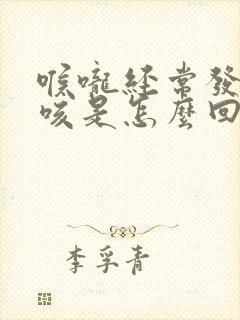 喉嚨經常發
咳是怎麼回
李孚青